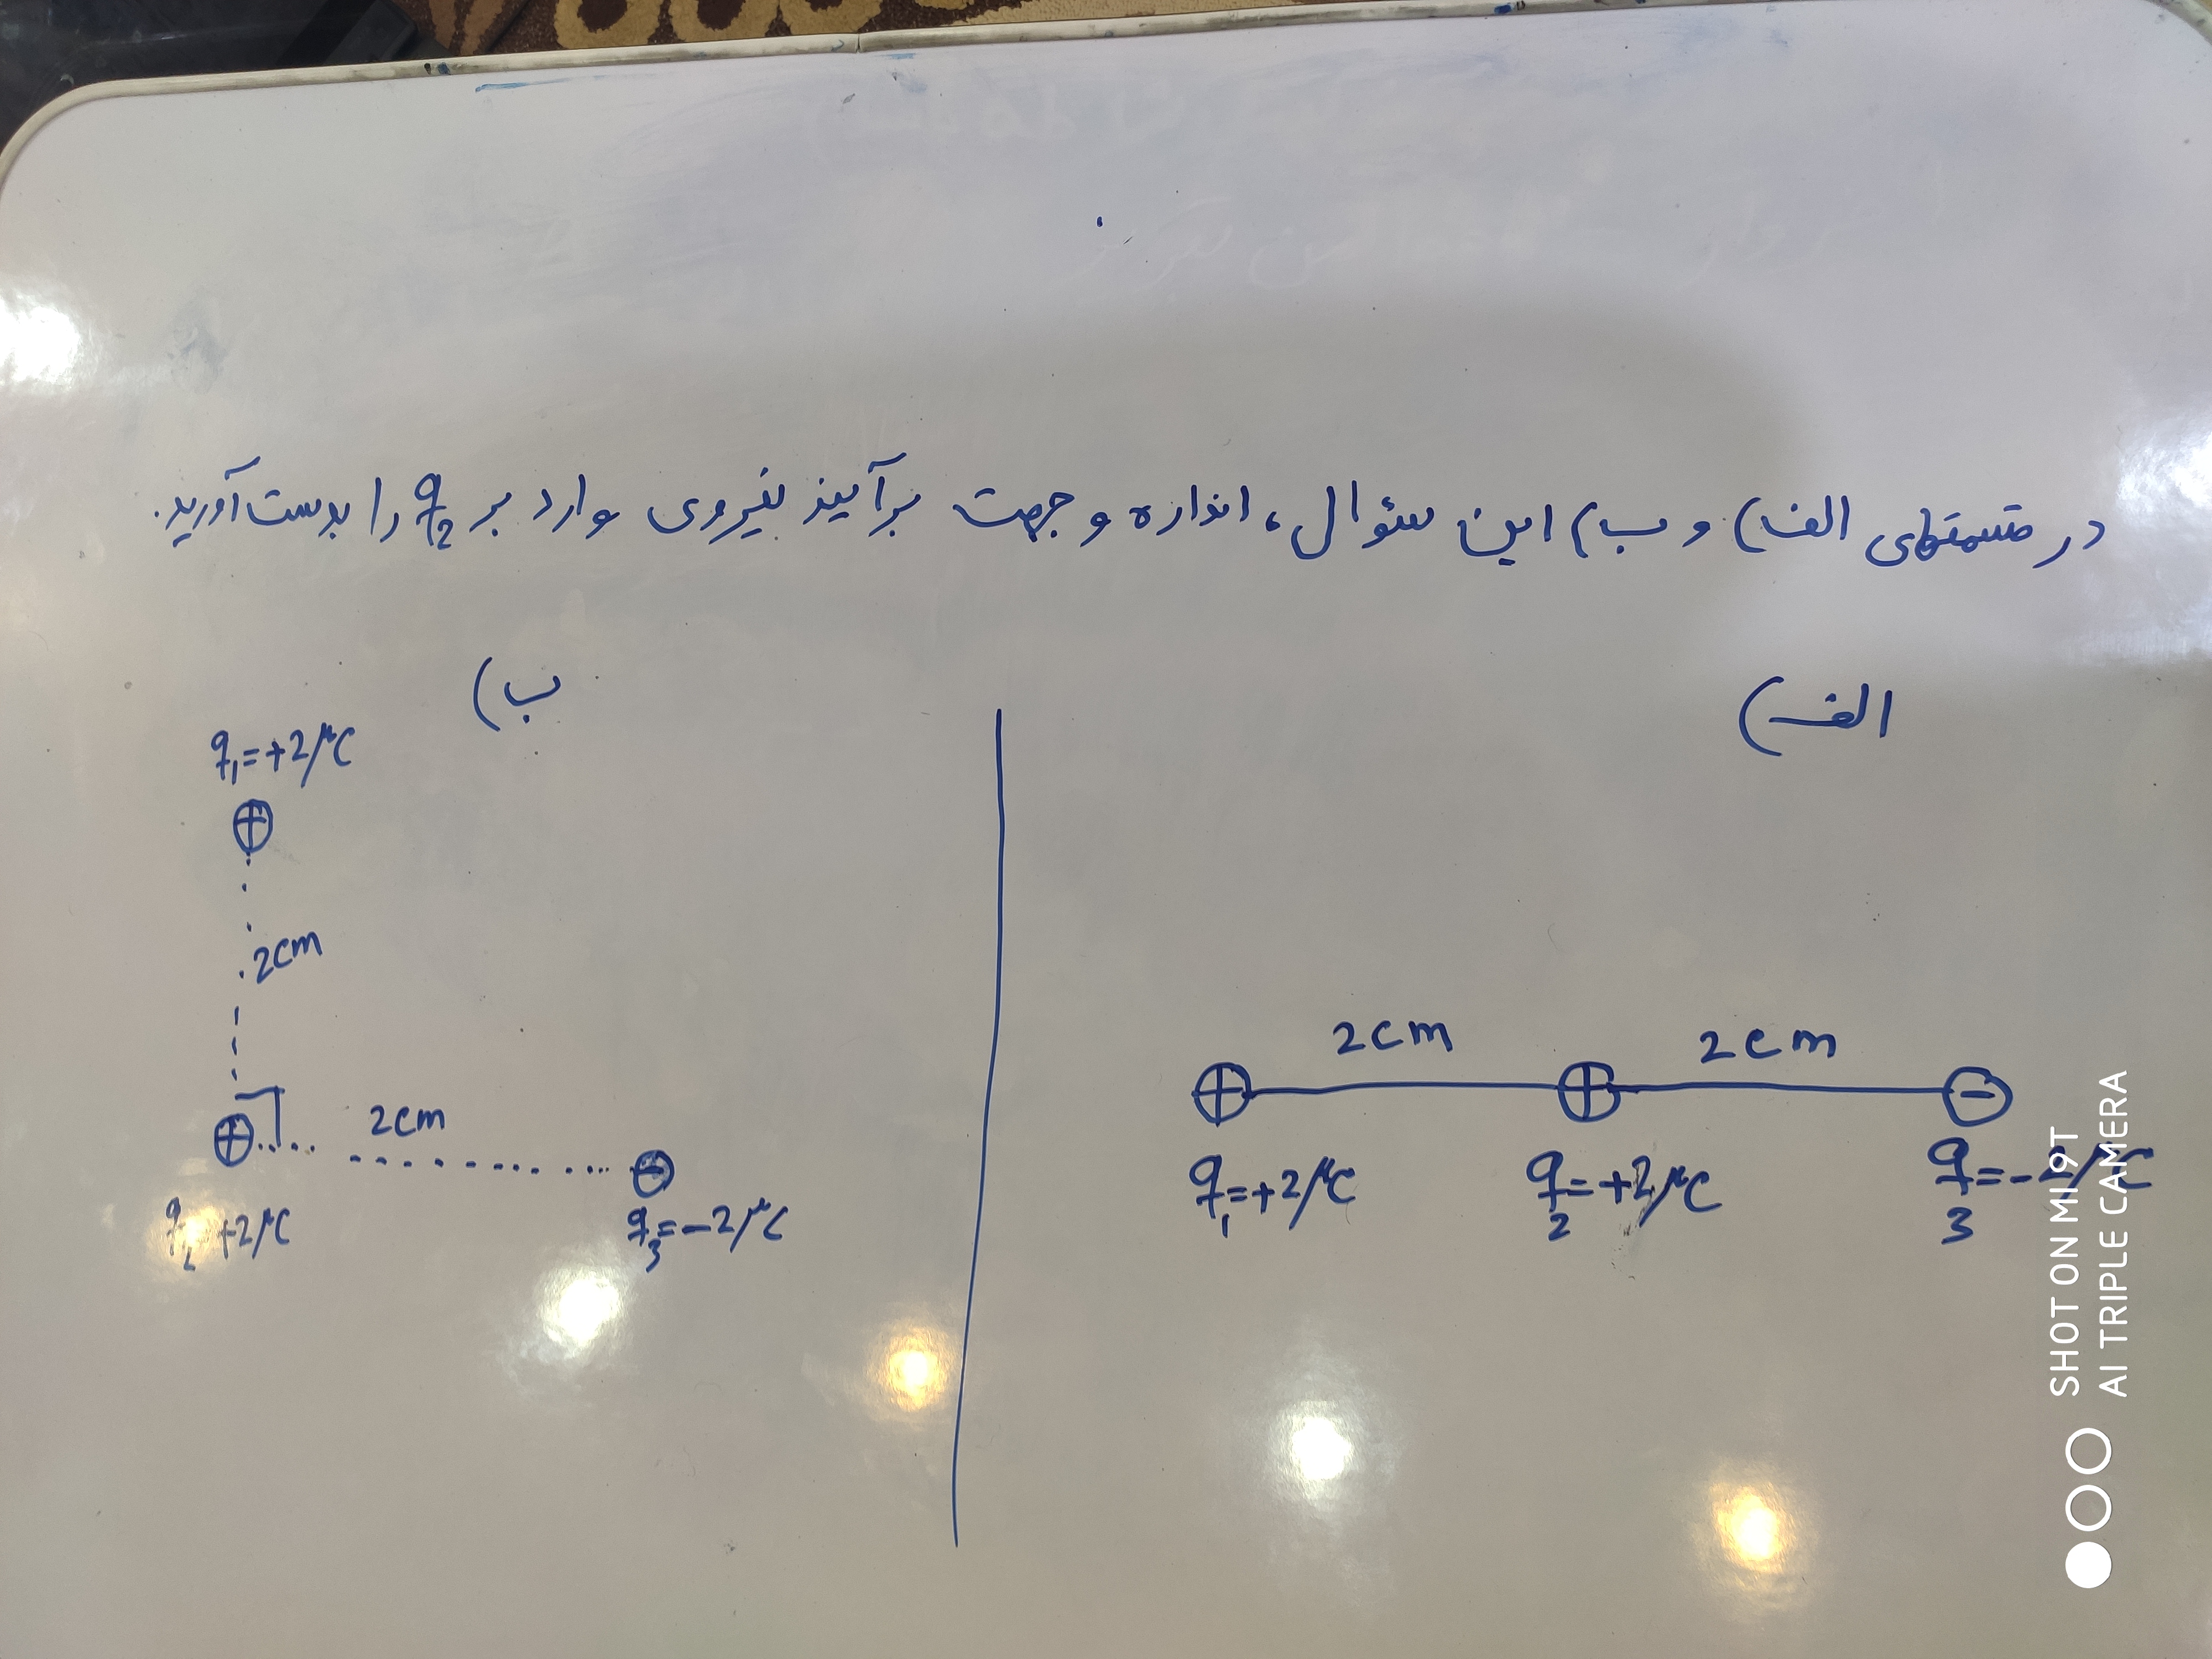 در قسمتهای الف) و ب) این سئوال، اندازه و جهت برآیند نیروی وارد بر q2 را بدست آورید.
الف)
2cm 2cm
q1=+2μC q2=+2μC q3=-2μC
ب)
q1=+2μC
2cm
2cm
q2 +2μC q3=-2μC
SHOT ON MI 9T
AI TRIPLE CAMERA